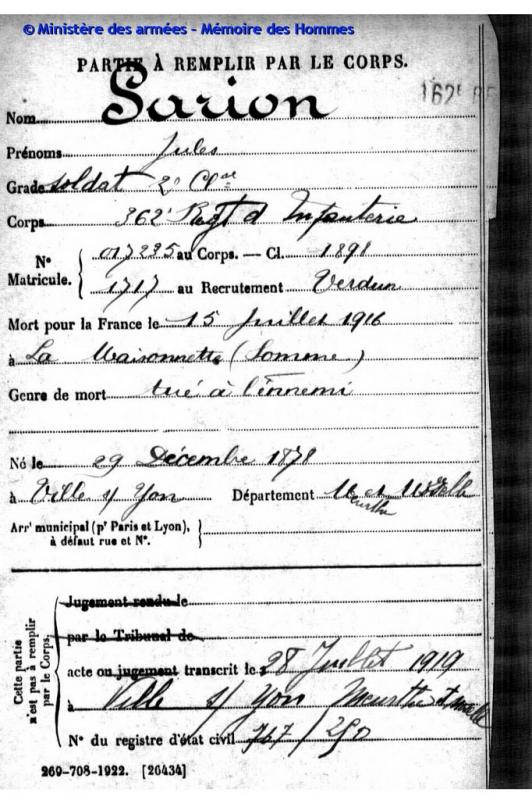 © Ministère des armées - Mémoire des Hommes
PARTIE À REMPLIR PAR LE CORPS.
Nom Sarion
Prénoms Jules
Grade soldat 2e Clse
Corps 362e Regt d'Infanterie
N° Matricule. { 017235 au Corps. — Cl. 1898
1717 au Recrutement Verdun
Mort pour la France le 15 Juillet 1916
à La Maisonnette (Somme)
Genre de mort tué à l'ennemi
Né le 29 Décembre 1878
à Ville s/ Yon Département M et Moselle
Meurthe
Arrt municipal (pr Paris et Lyon),
à défaut rue et N°.
Cette partie n'est pas à remplir par le Corps.
Jugement rendu le
par le Tribunal de
acte ou jugement transcrit le 28 Juillet 1919
à Ville s/ Yon Meurthe et Moselle
N° du registre d'état civil 767/250
269-708-1922. [26434]